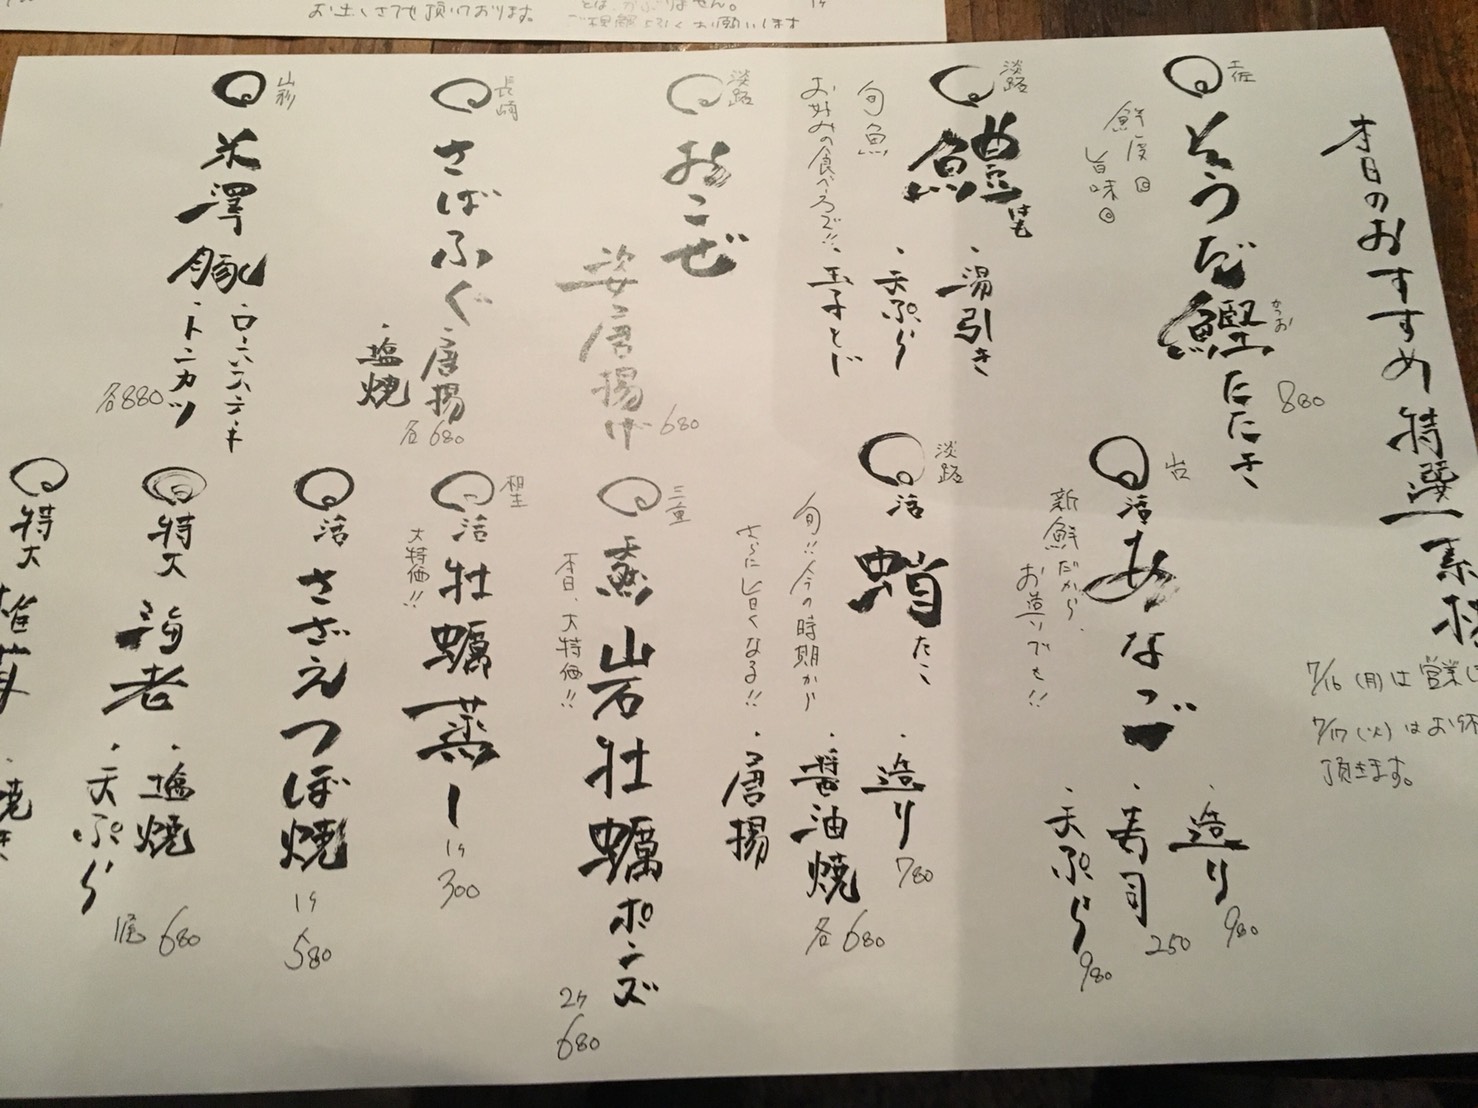 お出しさせて頂いております。
ません。
ご理解よろしくお願いします
本日のおすすめ特選素材
7/16(月)は営業
7/17(火)はお休
頂きます。
土佐
そうだ鰹たたき
かつお
鮮度◎
旨味◎
880
淡路
鱧
はも
・湯引き
・天ぷら
・玉子とじ
旬魚
お好みの食べ方で!!
淡路
おこぜ
姿唐揚げ
680
長崎
さばふぐ
唐揚
・塩焼
各680
山形
米澤豚
・トンカツ
各880
活あなご
新鮮だから、
お造りでも!!
・造り
980
・寿司
250
・天ぷら
980
淡路
活蛸
たこ
旬!!今の時期から
さらに旨くなる!!
・造り
780
・醤油焼
・唐揚
各680
三重
岩牡蠣ポンズ
本日、大特価!!
2ケ
680
相生
活牡蠣蒸し
大特価!!
1ケ
300
活さざえつぼ焼
1ケ
580
特大海老
・塩焼
・天ぷら
1尾680
特大
・焼き